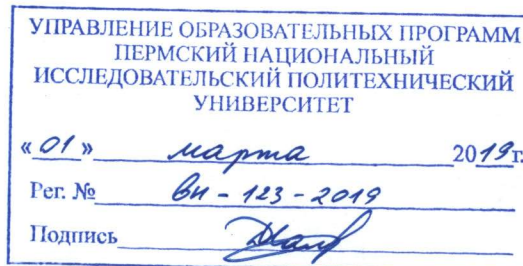 УПРАВЛЕНИЕ ОБРАЗОВАТЕЛЬНЫХ ПРОГРАММ
ПЕРМСКИЙ НАЦИОНАЛЬНЫЙ
ИССЛЕДОВАТЕЛЬСКИЙ ПОЛИТЕХНИЧЕСКИЙ
УНИВЕРСИТЕТ
«01» марта 2019г.
Рег. № вн - 123 - 2019
Подпись